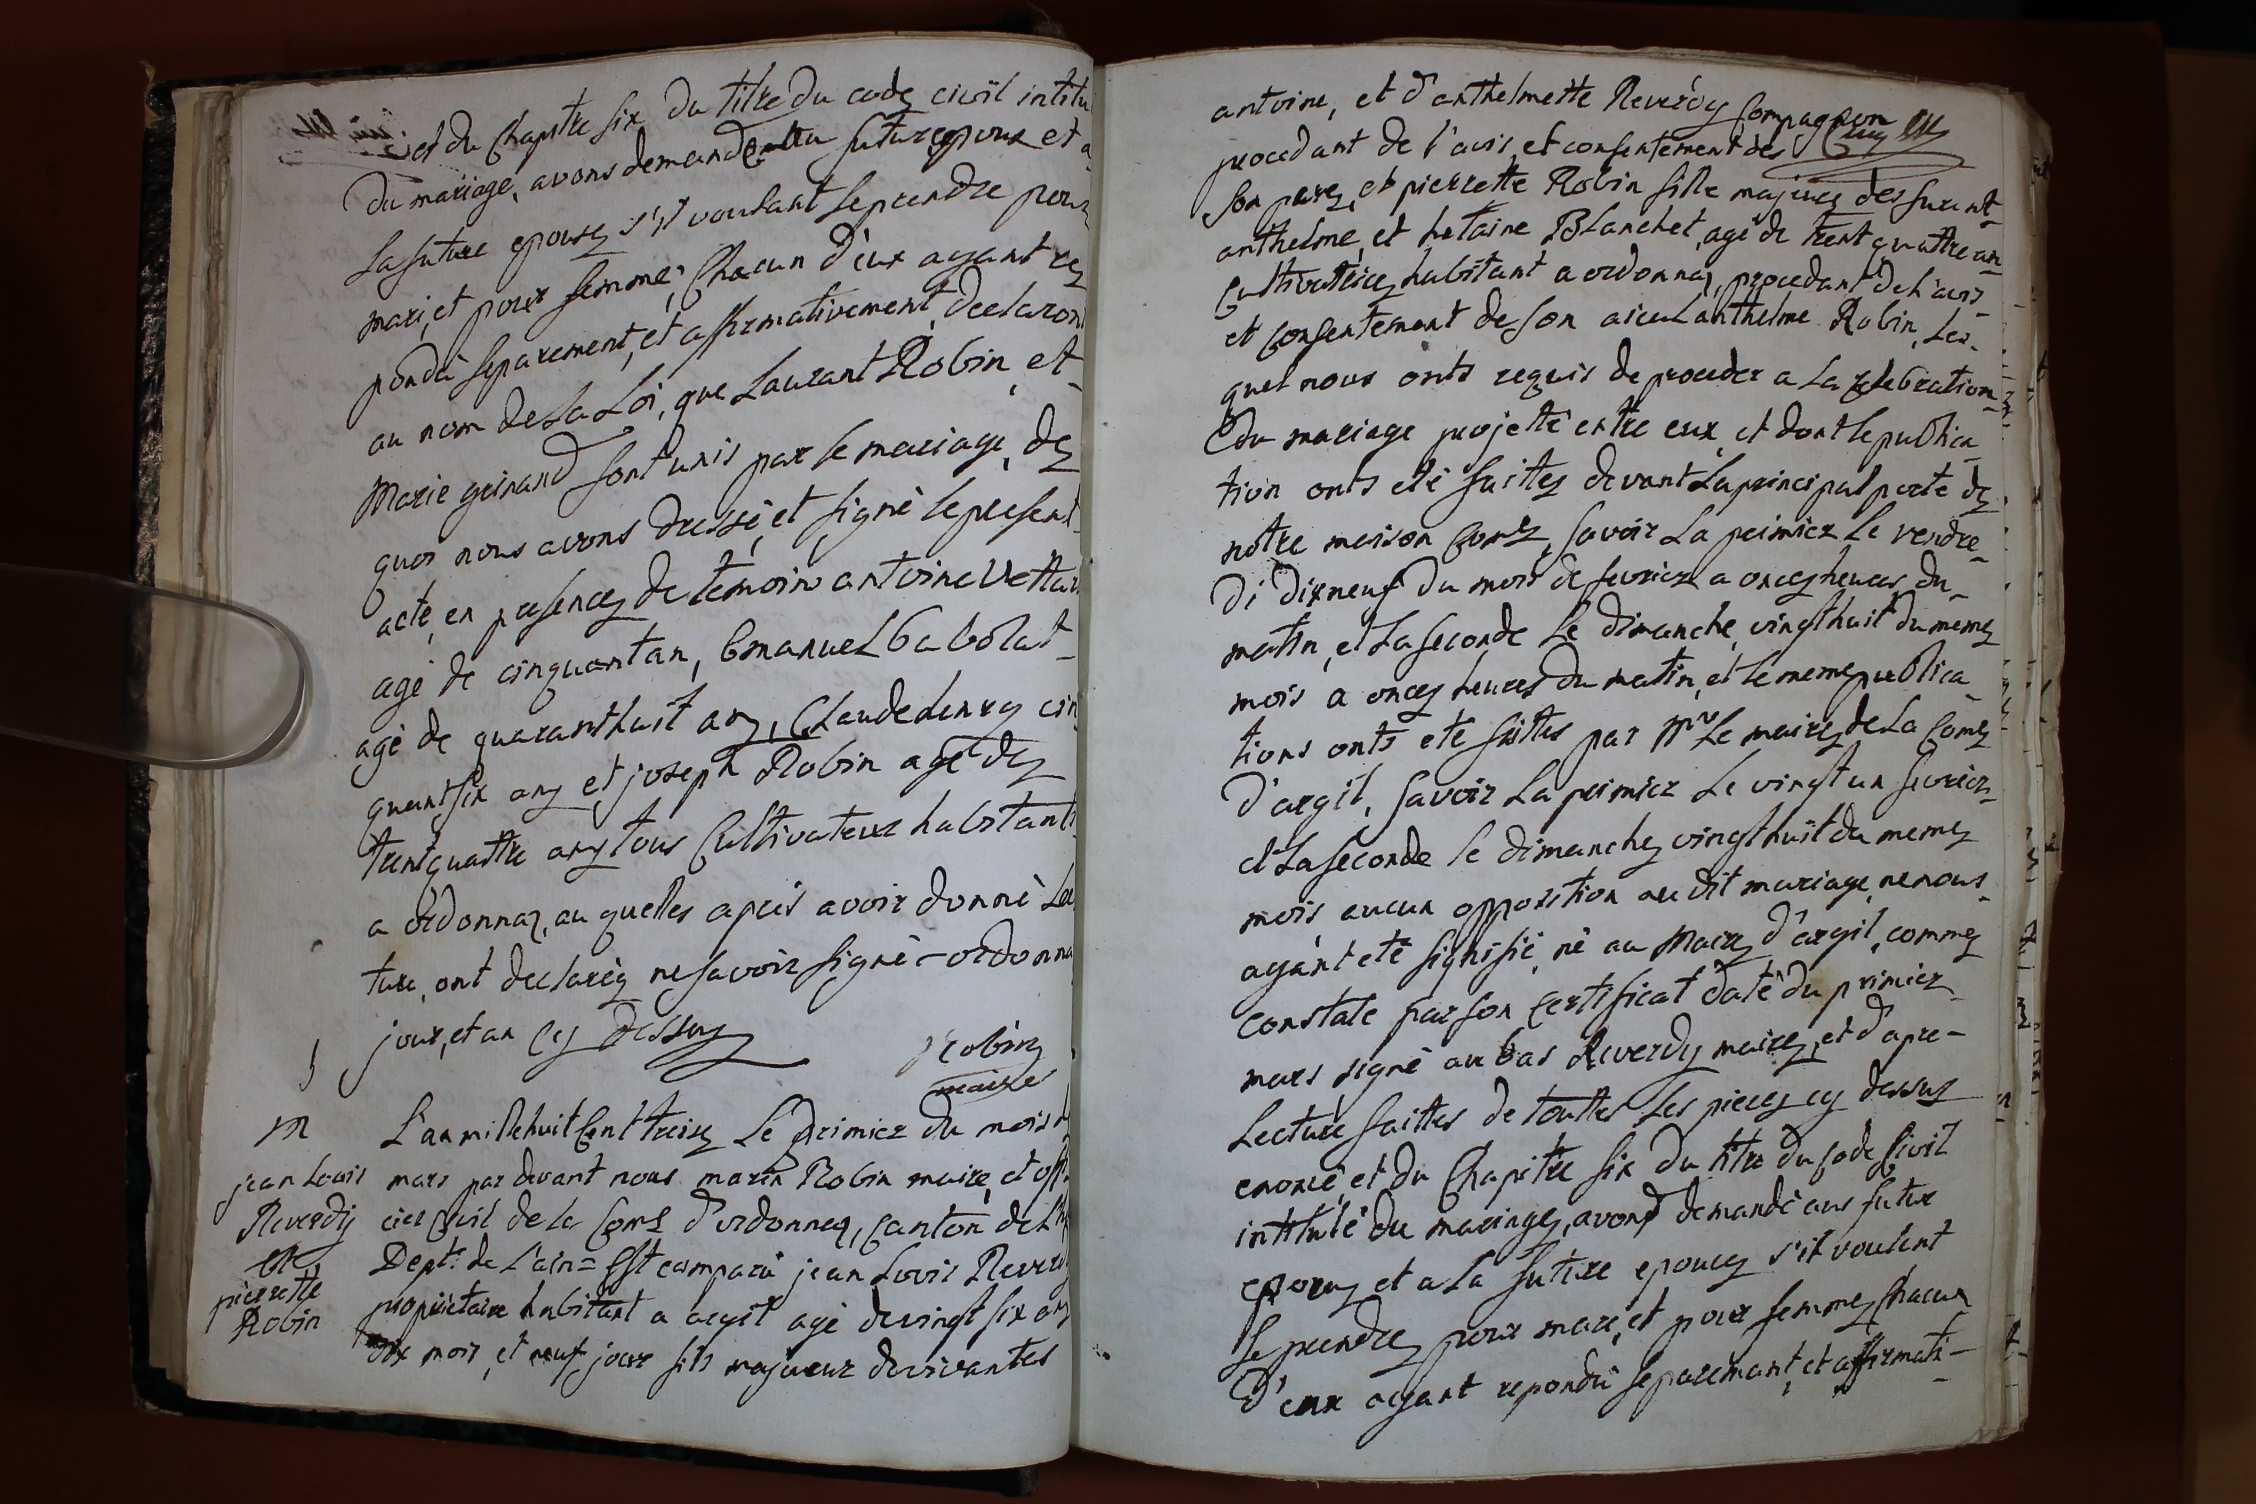 et du Chapitre six du titre du code civil intitu
du mariage, avons demandé au futur epoux et a
la future epouse s'il voulant se prendre pour
mari, et pour femme, Chacun d'eux ayant re
pondu separement, et affirmativement, declarons
au nom de la Loi, que Laurant Robin et
Marie guinand sont unis par le mariage, de
quoi nous avons dressé, et signé le present
acte, en presence de temoins antoine Vettar
agé de cinquant an, Emanuel Gabolat
agé de quaranthuit an, Claude henry cin
quantsix an et joseph Robin agé de
trentquattre an tous Cultivateur habitants
a ordonnaz, au quelles apeis avoir donné lec
ture, ont declareé ne savoir signé - ordonna
jour, et an cy dessus
Robin
maire
M
jean Louis
Reverdy
et
pierrette
Robin
L'an mille huit Cent treise Le primier du mois de
mars par devant nous marin Robin maire, et offi
cier Civil de la Come d'ordonnaz, Canton de
Dept. de L'ain = Est comparu jean Louis Reverdy
propriétaire habitant a argit agé de vingt six an
dix mois, et neuf jour fils majueur de vivantes
antoine, et d'anthelmette Reverdy Compagnon
procedant de l'avis et consentement des
son pere, et pierrette Robin fille majeure des furent
anthelme, et helaine Blanchet, agé de trent quattre an
Cultivatrice habitant a ordonnaz, procedant de l'avis
et Consentement de son aieul anthelme Robin, Les
quel nous onts requis de proceder a La celebration
du mariage projetté entre eux, et dont le publica
tion onts eté faittes devant La principal porte de
notre maison Come, savoir La peimier Le vendre
di dixneuf du mois de fevrier a once heures du
matin, et La seconde Le dimanche, vingthuit du meme
mois a once heures du matin, et le meme publica
tions onts eté faittes par Mr Le maire de La Come
d'argil, savoir La peimier Le vingt un fevrier
et La seconde le dimanche vingthuit du meme
mois, aucun opposition au dit mariage ne nous
ayant eté signifié, né au Maire d'argil, comme
constate par son certificat daté du primier
mars signé au bas Reverdy maire, et d'apre
Lecture faittes de touttes Les pieces cy dessus
enoncé, et du Chapitre six du titre du Code Civil
intitulé du mariage, avons demandé aus futur
epoux et a la future epouce s'il voulent
se prendre pour mari, et pour femme, Chacun
d'eux ayant repondu separemant, et affirmati-